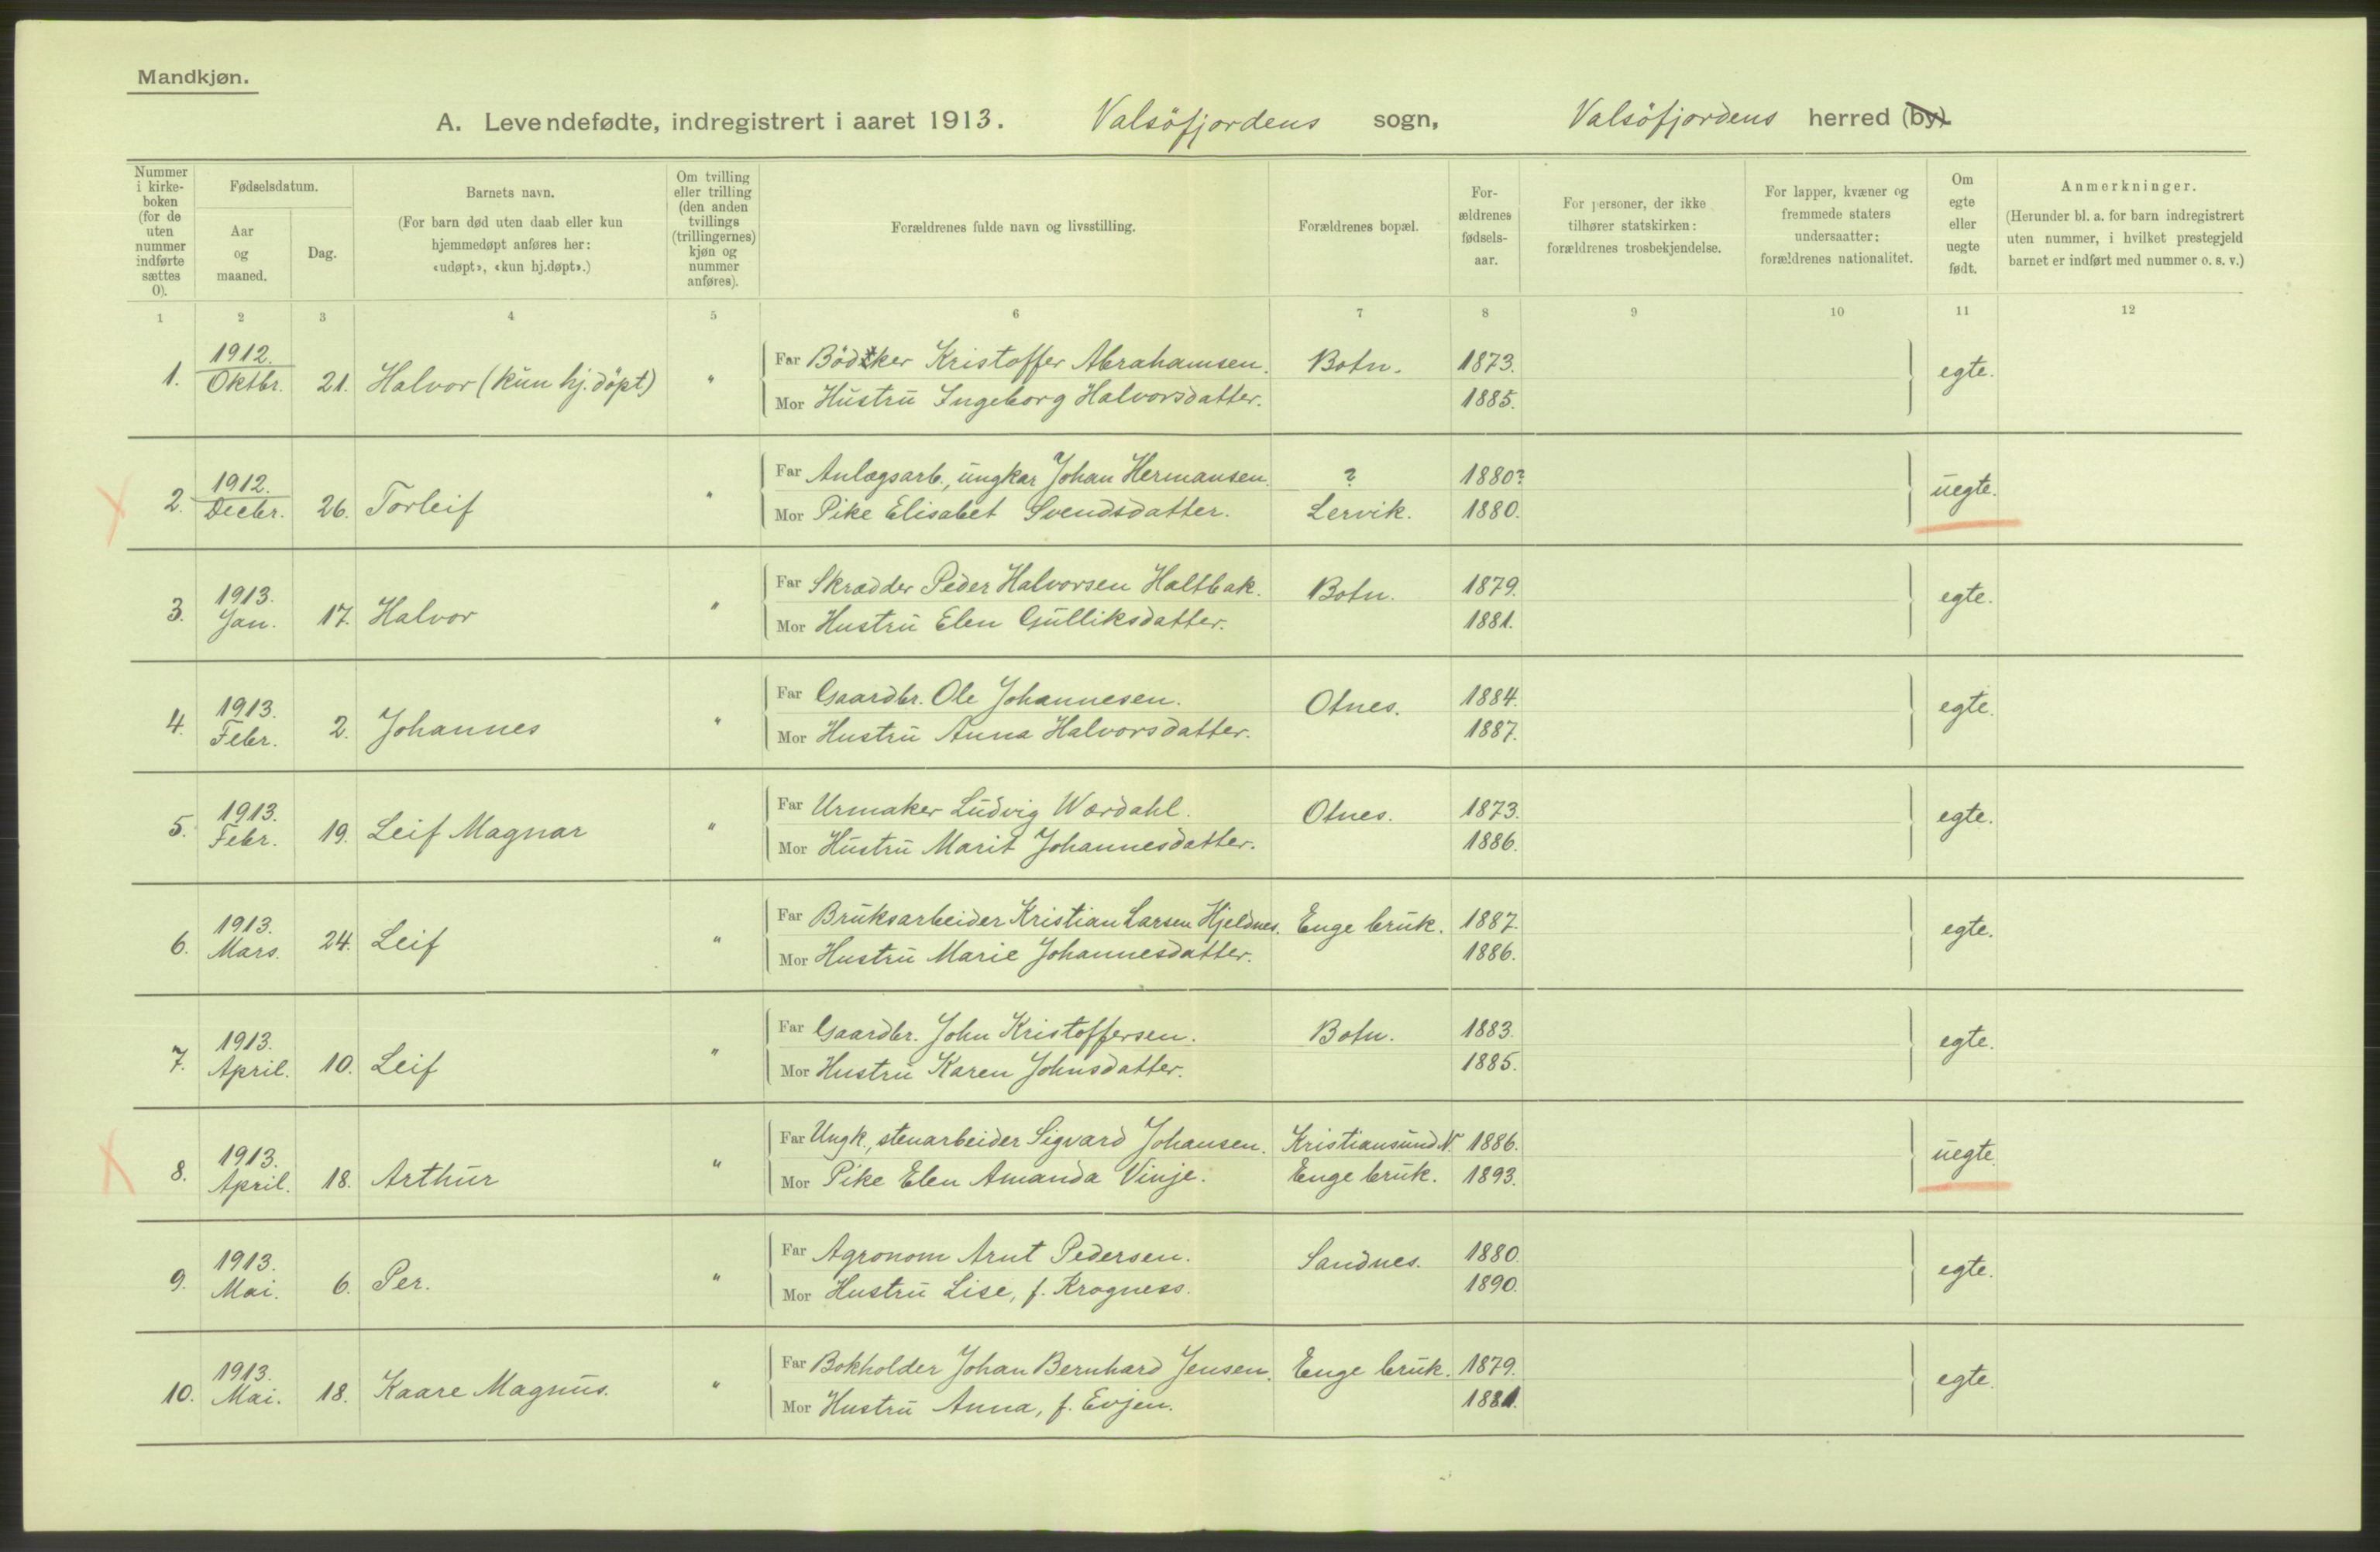 Mandkjøn.
A. Levendefødte, indregistrert i aaret 1913. Valsöfjordens sogn, Valsöfjordens herred (by).
Nummer i kirke- boken (for de uten nummer indførte sættes 0).
Fødselsdatum.
Aar og maaned.
Dag.
Barnets navn.
(For barn død uten daab eller kun hjemmedøpt anføres her: «udøpt», «kun hj.døpt».)
Om tvilling eller trilling (den anden tvillings (trillingernes) kjøn og nummer anføres).
Forældrenes fulde navn og livsstilling.
Forældrenes bopæl.
For- ældrenes fødsels- aar.
For personer, der ikke tilhører statskirken: forældrenes trosbekjendelse.
For lapper, kvæner og fremmede staters undersaatter: forældrenes nationalitet.
Om egte eller uegte født.
Anmerkninger.
(Herunder bl. a. for barn indregistrert uten nummer, i hvilket prestegjeld barnet er indført med nummer o. s. v.)
1 2 3 4 5 6 7 8 9 10 11 12
1. 1912. Oktbr. 21. Halvor (kun hj. döpt) " Far Bödker Kristoffer Abrahamsen. Botn. 1873. egte.
Mor Hustru Ingeborg Halvorsdatter. 1885.
2. 1912. Decbr. 26. Torleif " Far Anlægsarb., ungkar Johan Hermansen. ? 1880? uegte.
Mor Pike Elisabet Svendsdatter. Lervik. 1880.
3. 1913. Jan. 17. Halvor " Far Skrædder Peder Halvorsen Haltbak. Botn. 1879. egte.
Mor Hustru Elen Gulliksdatter. 1881.
4. 1913. Febr. 2. Johannes " Far Gaardbr. Ole Johannesen. Otnes. 1884. egte.
Mor Hustru Anna Halvorsdatter. 1887.
5. 1913. Febr. 19. Leif Magnar " Far Urmaker Ludvig Wærdahl. Otnes. 1873. egte.
Mor Hustru Marit Johannesdatter. 1886.
6. 1913. Mars. 24. Leif " Far Bruksarbeider Kristian Larsen Hjeldnes. Enge bruk. 1887. egte.
Mor Hustru Marie Johannesdatter. 1886.
7. 1913. April. 10. Leif " Far Gaardbr. John Kristoffersen. Botn. 1883. egte.
Mor Hustru Karen Johnsdatter. 1885.
8. 1913. April. 18. Arthur " Far Ungk., stenarbeider Sigvard Johansen. Kristiansund N. 1886. uegte.
Mor Pike Elen Amanda Vinje. Enge bruk. 1893.
9. 1913. Mai. 6. Per. " Far Agronom Arnt Pedersen. Sandnes. 1880. egte.
Mor Hustru Lise, f. Krogness. 1890.
10. 1913. Mai. 18. Kaare Magnus. " Far Bokholder Johan Bernhard Jensen. Enge bruk. 1879. egte.
Mor Hustru Anna, f. Evjen. 1881.